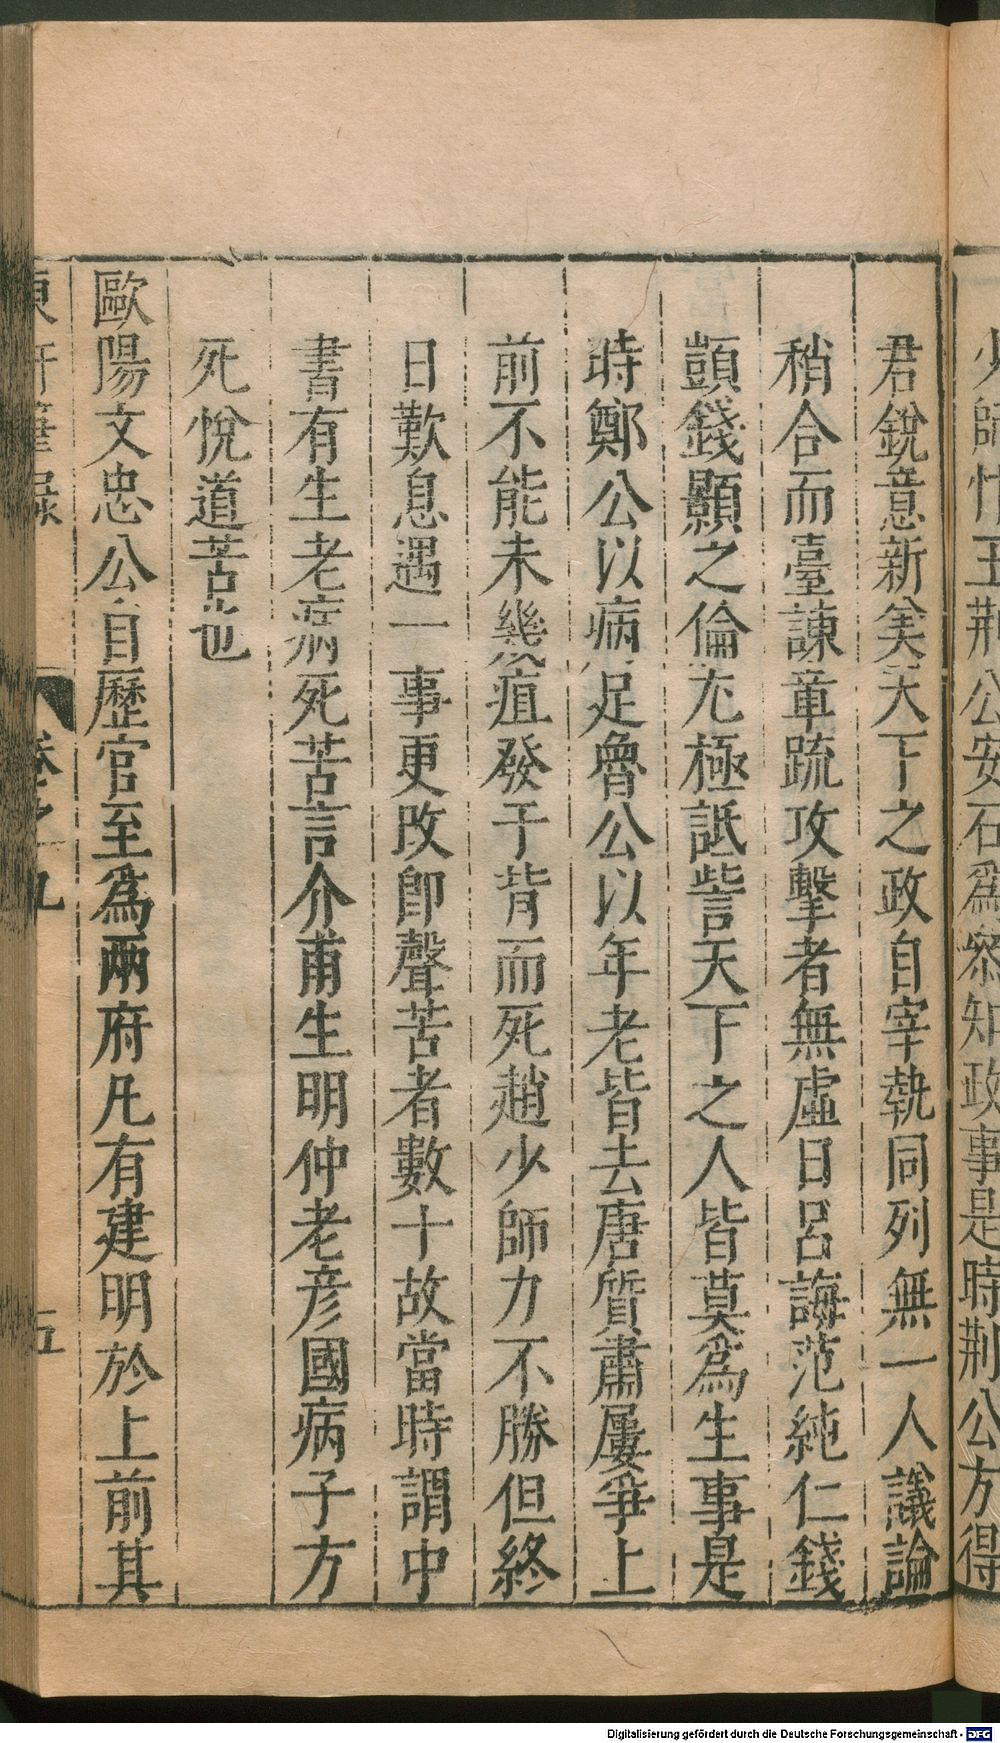 少師忭王荆公安石爲叅知政事是時荆公方得
君銳意新美天下之政自宰執同列無一人議論
稍合而臺諫章疏攻擊者無虛日呂誨范純仁錢
顗錢顯之倫尤極詆訾天下之人皆莫爲生事是
時鄭公以病足魯公以年老皆去唐質肅屢爭上
前不能未幾疽發于背而死趙少師力不勝但終
日歎息遇一事更改卽聲苦者數十故當時謂中
書有生老病死苦言介甫生明仲老彦國病子方
死悅道苦也
歐陽文忠公自歷官至爲兩府凡有建明於上前其
東軒筆錄 卷之九 五
Digitalisierung gefördert durch die Deutsche Forschungsgemeinschaft - DFG